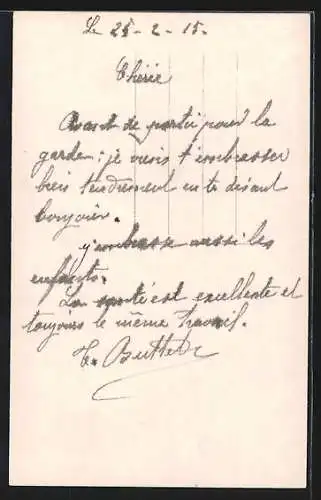 Le 25-2-15-
Cherie
Avant de partir pour la
garde; je viens t'embrasser
bien tendrement en te disant
bonjour.
j'embrasse aussi les
enfants.
La santé est excellente et
toujours le même travail.